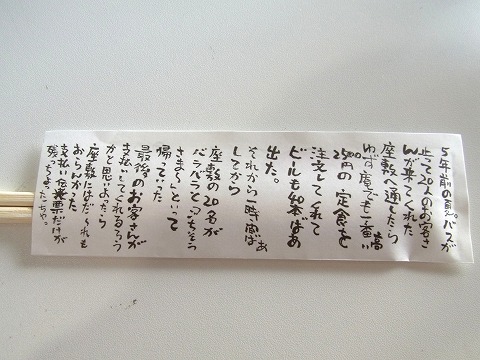 5年前の夏。バスが
止って20人のお客さ
んが来てくれた
座敷へ通したら
ゆず庵でも一番高い
2500円の定食を
注文してくれて
ビールも60本ばあ
出た。
それから一時間ばあ
してから
座敷の20名が
バラバラと「ごちそう
さま〜」といって
帰っていった
最後のお客さんが
支払いしてくれるろう
かと思いよったら
座敷にはだ〜れも
おらんかった
支払い伝票だけが
残っちょったちや。